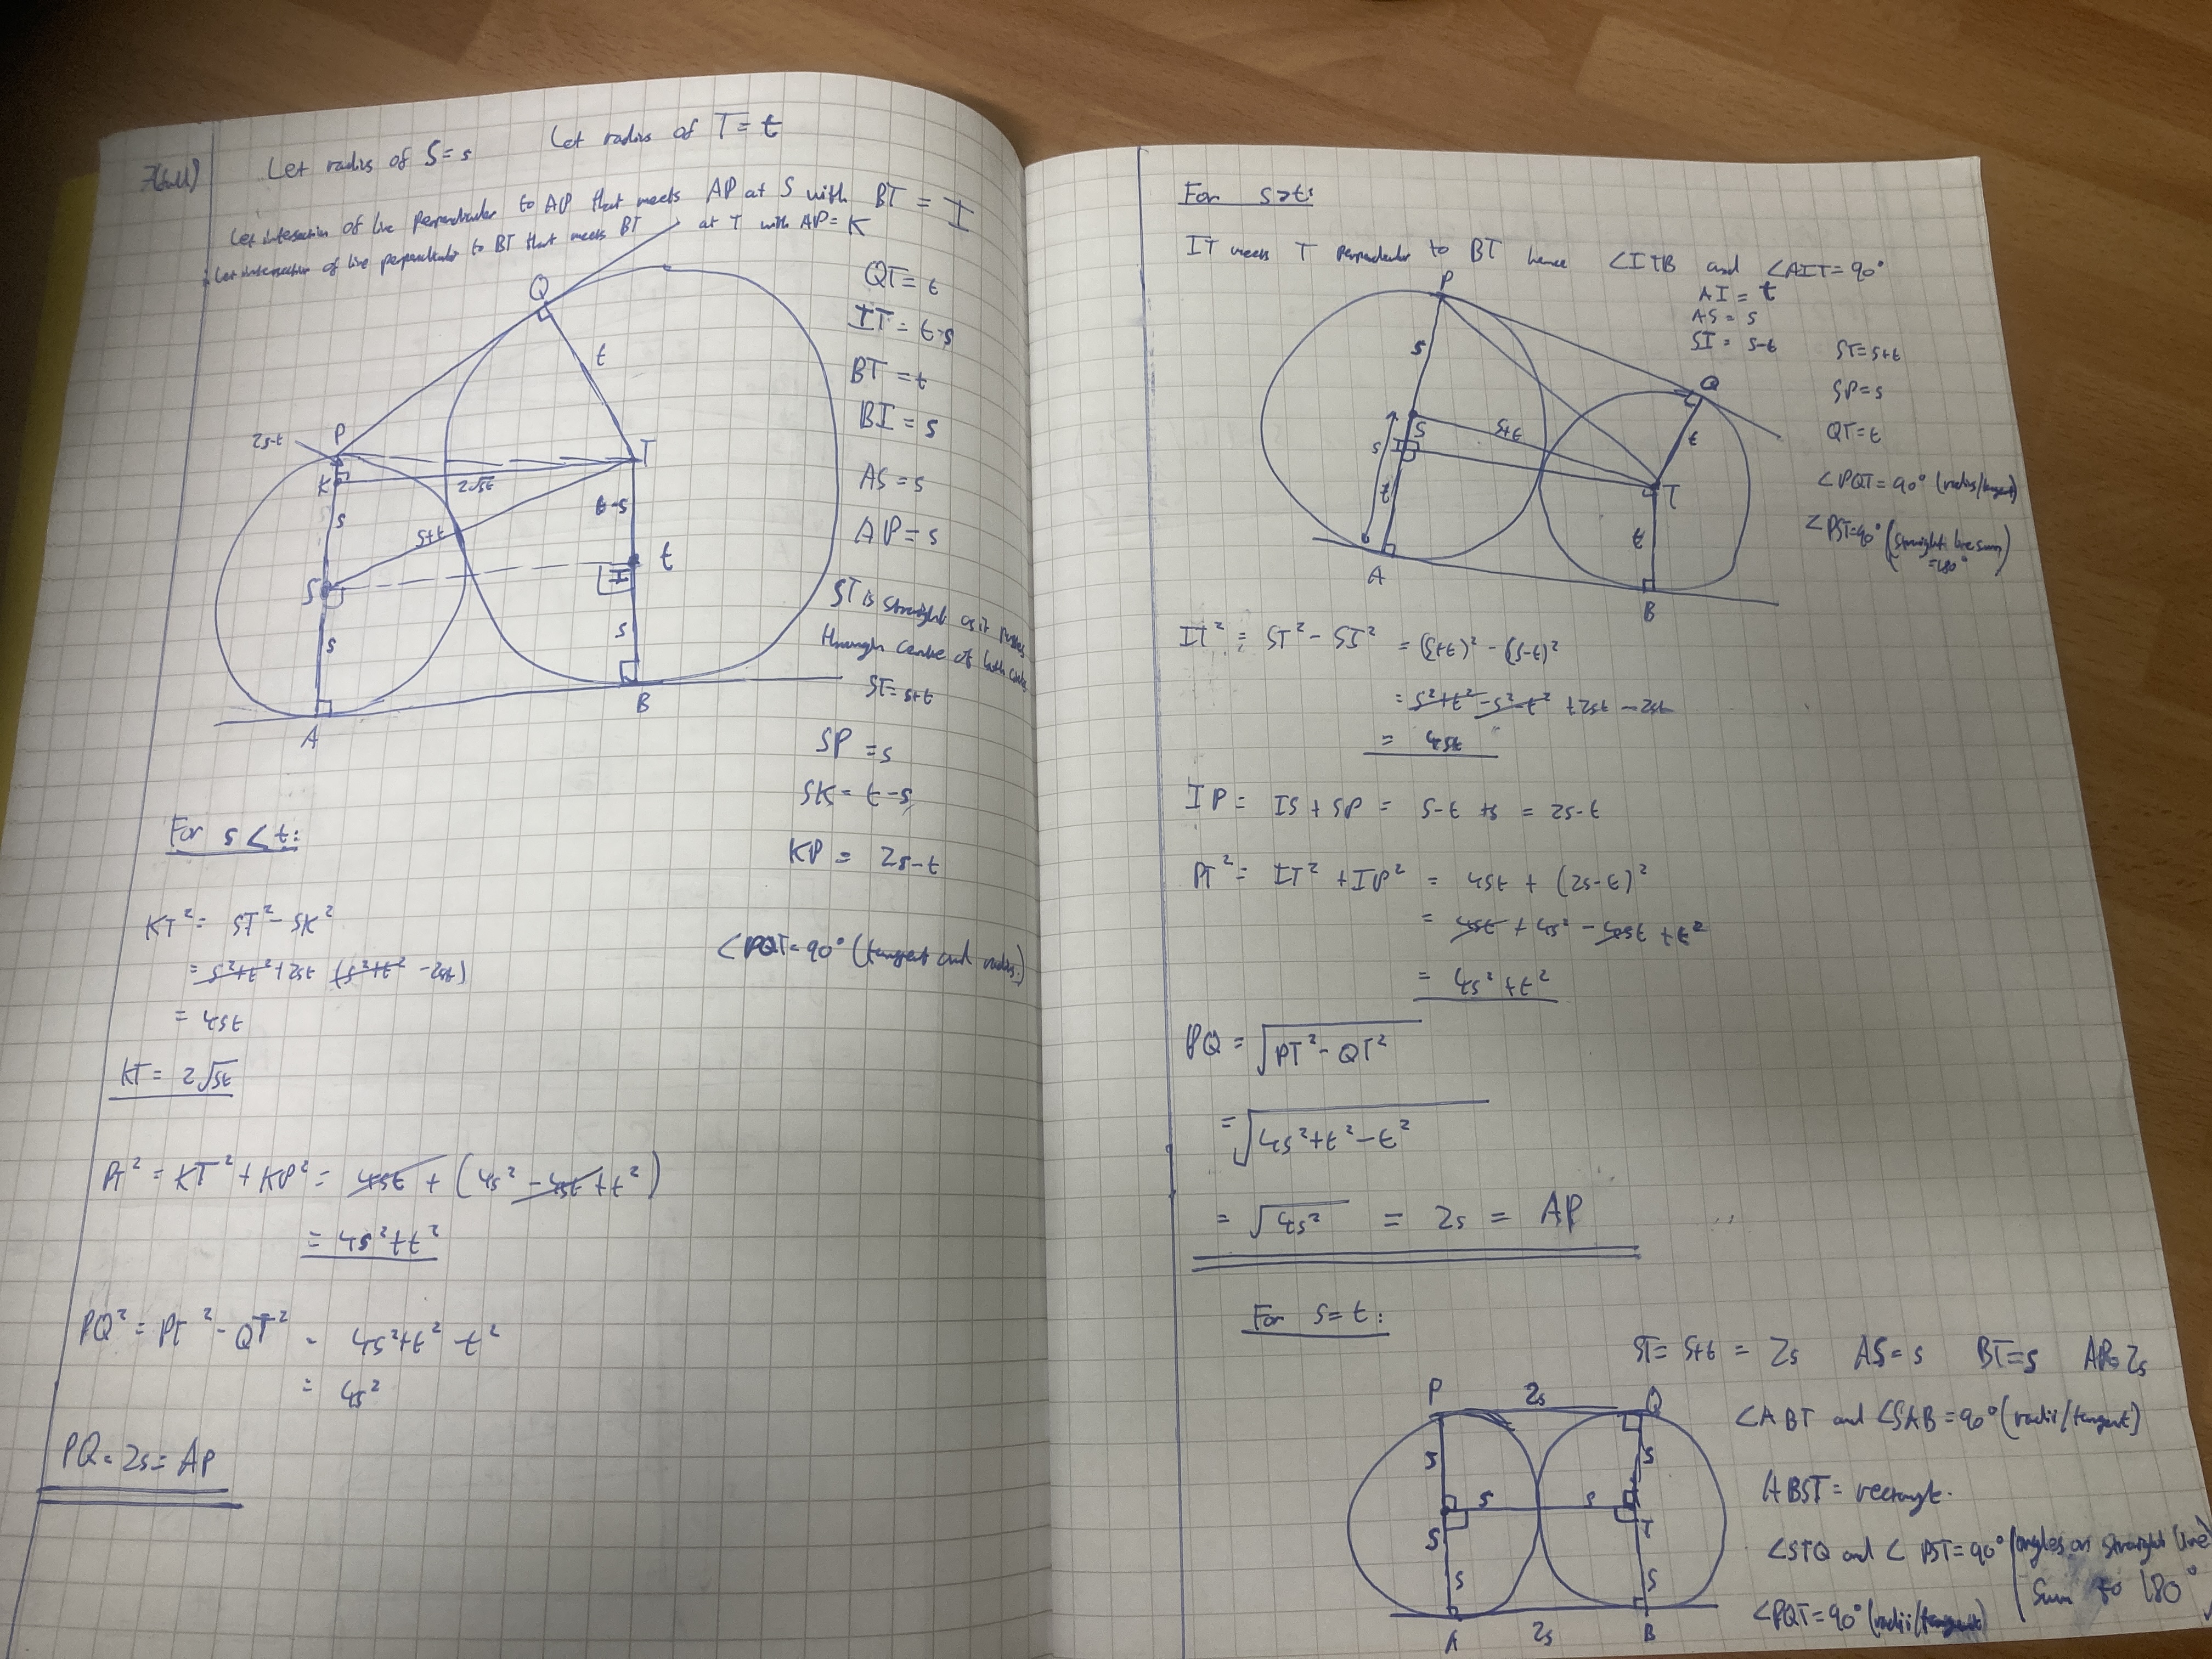 Let radius of S = s Let radius of T = t
Let intersection of line perpendicular to AP that meets AP at S with BT = I
Let intersection of line perpendicular to BT that meets BT at T with AP = K
2s-t
P
K
S
A
s
s
s+t
2√st
Q
t
T
t-s
I
t
s
B
QT = t
IT = t-s
BT = t
BI = s
AS = s
AP = s
ST is straight as it
through centre of both
ST = s+t
SP = s
SK = t-s
KP = 2s-t
<PQT = 90° (tangent and radius)
For s < t:
KT² = ST² - SK²
= s²+t²+2st - (s²+t² - 2st)
= 4st
KT = 2√st
PT² = KT² + KP² = 4st + (4s² - 4st + t²)
= 4s²+t²
PQ² = PT² - QT² = 4s²+t² - t²
= 4s²
PQ = 2s = AP
For s>t:
IT meets T perpendicular to BT hence <ITB and <AIT = 90°
AI = t
AS = s
SI = s-t
ST = s+t
SP = s
QT = t
<PQT = 90° (radius/tangent)
<PIT = 90° (straight line sum
= 180°)
P
s
S
I
s
t
A
s+t
Q
t
T
t
B
IT² = ST² - SI² = (s+t)² - (s-t)²
= s²+t² - s² - t² + 2st - -2st
= 4st
IP = IS + SP = s-t + s = 2s-t
PT² = IT² + IP² = 4st + (2s-t)²
= 4st + 4s² - 4st + t²
= 4s²+t²
PQ = √PT² - QT²
= √4s²+t² - t²
= √4s² = 2s = AP
For s=t:
P
2s
Q
s
s
S
s
s
T
s
s
A
2s
B
ST = s+t = 2s AS = s BT = s AP = 2s
<ABT and <SAB = 90° (radii/tangent)
ABST = rectangle.
<STQ and < PST = 90° (angles on straight line
sum to 180°
<PQT = 90° (radii/tangents)